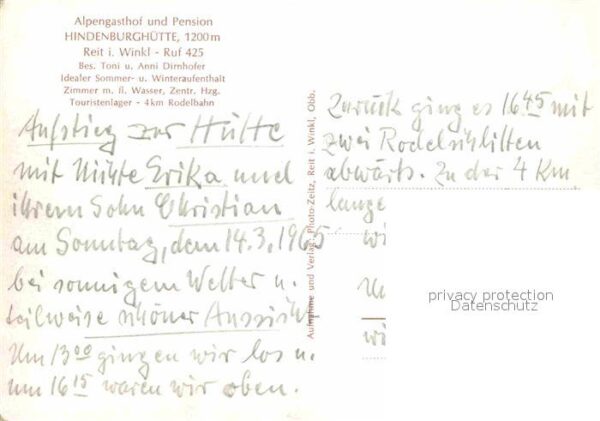 Alpengasthof und Pension
HINDENBURGHÜTTE, 1200 m
Reit i. Winkl - Ruf 425
Bes. Toni u. Anni Dirnhofer
Idealer Sommer- u. Winteraufenthalt
Zimmer m. fl. Wasser, Zentr. Hzg.
Touristenlager - 4 km Rodelbahn
Aufstieg zur Hütte
mit Nichte Erika und
ihrem Sohn Christian
am Sonntag, dem 14.3.1965
bei sonnigem Wetter u.
teilweise schöner Aussicht.
Um 13⁰⁰ gingen wir los u.
um 16¹⁵ waren wir oben.
Aufnahme und Verlag: Photo-Zeitz, Reit i. Winkl, Obb.
Zurück ging es 16⁴⁵ mit
zwei Rodelschlitten
abwärts. Zu der 4 Km.
lange
wi
wi
privacy protection
Datenschutz